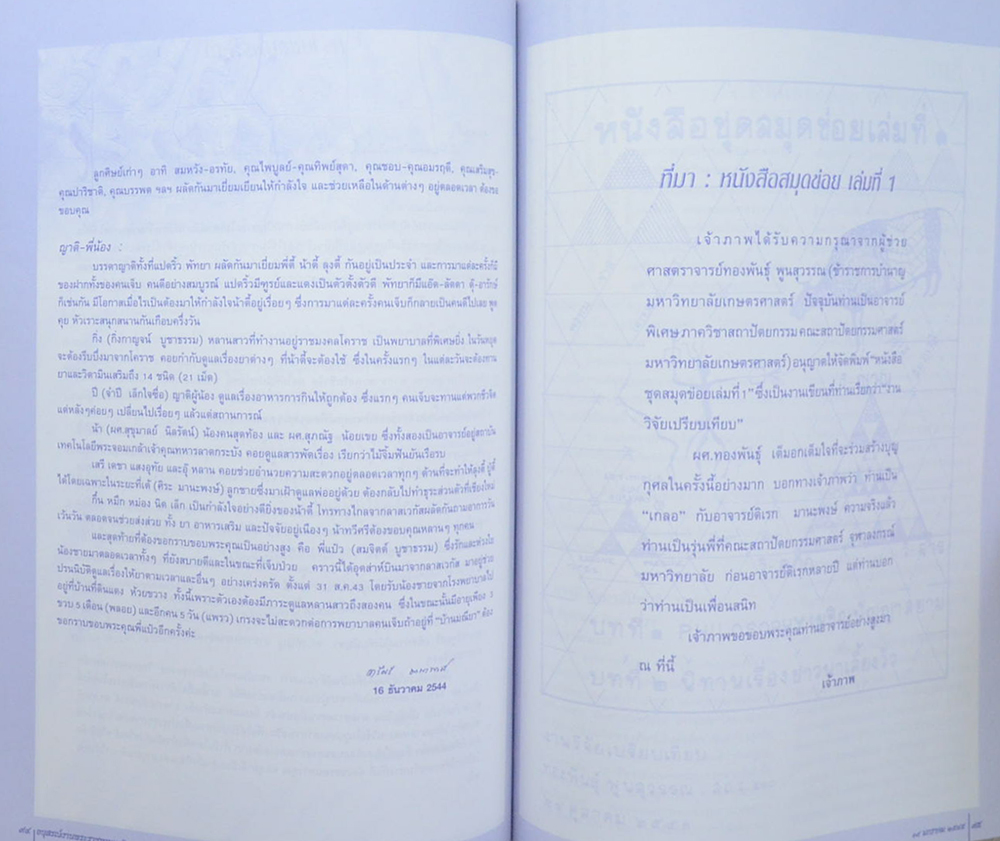 ลูกศิษย์เก่าๆ อาทิ สมหวัง-อรทัย, คุณไพบูลย์-คุณทิพย์สุดา, คุณชอบ-คุณอมรฤดี, คุณเสริมสุข-
คุณปาริชาติ, คุณบรรพต ฯลฯ ผลัดกันมาเยี่ยมเยียนให้กำลังใจ และช่วยเหลือในด้านต่างๆ อยู่ตลอดเวลา ต้องขอ
ขอบคุณ
ญาติ-พี่น้อง :
บรรดาญาติทั้งที่แปดริ้ว พัทยา ผลัดกันมาเยี่ยมพี่ตี้ น้าตี้ ลุงตี้ กันอยู่เป็นประจำ และการมาแต่ละครั้งก็มี
ของฝากทั้งของคนเจ็บ คนดีอย่างสมบูรณ์ แปดริ้วมีฑูรย์และแดงเป็นตัวตั้งตัวตี พัทยาก็มีแอ๊ด-ลัดดา ตุ้-อารักษ์
ก็เช่นกัน มีโอกาสเมื่อไรเป็นต้องมาให้กำลังใจน้าตี้อยู่เรื่อยๆ ซึ่งการมาแต่ละครั้งคนเจ็บก็กลายเป็นคนดีไปเลย พูด
คุย หัวเราะสนุกสนานกันเกือบครึ่งวัน
กิ่ง (กิ่งกาญจน์ บูชาธรรม) หลานสาวที่ทำงานอยู่ราชมงคลโคราช เป็นพยาบาลที่พิเศษยิ่ง ในวันหยุด
จะต้องรีบบึ่งมาจากโคราช คอยกำกับดูแลเรื่องยาต่างๆ ที่น้าตี้จะต้องใช้ ซึ่งในครั้งแรกๆ ในแต่ละวันจะต้องทาน
ยาและวิตามินเสริมถึง 14 ชนิด (21 เม็ด)
ปี (จำปี เล็กใจซื่อ) ญาติผู้น้อง ดูแลเรื่องอาหารการกินให้ถูกต้อง ซึ่งแรกๆ คนเจ็บจะทานแต่พวกชีวจิต
แต่หลังๆค่อยๆ เปลี่ยนไปเรื่อยๆ แล้วแต่สถานการณ์
น้า (ผศ.สุขุมาลย์ นิลรัตน์) น้องคนสุดท้อง และ ผศ.สุภณัฐ น้อยเขย ซึ่งทั้งสองเป็นอาจารย์อยู่สถาบัน
เทคโนโลยีพระจอมเกล้าเจ้าคุณทหารลาดกระบัง คอยดูแลสารพัดเรื่อง เรียกว่าไม้จิ้มฟันยันเรือรบ
เสรี เดชา แสงอุทัย และอุ๊ หลาน คอยช่วยอำนวยความสะดวกอยู่ตลอดเวลาทุกๆ ด้านที่จะทำให้ลุงตี้ ปู่ตี้
ได้โดยเฉพาะในระยะที่เต้ (ศิระ มานะพงษ์) ลูกชายซึ่งมาเฝ้าดูแลพ่ออยู่ด้วย ต้องกลับไปทำธุระส่วนตัวที่เชียงใหม่
กิ๋น หมึก หม่อง นิด เล็ก เป็นกำลังใจอย่างดียิ่งของน้าตี้ โทรทางไกลจากลาสเวกัสผลัดกันถามอาการวัน
เว้นวัน ตลอดจนช่วยส่งส่วย ทั้ง ยา อาหารเสริม และปัจจัยอยู่เนืองๆ น้าทวีศรีต้องขอบคุณหลานๆ ทุกคน
และสุดท้ายที่ต้องขอกราบขอบพระคุณเป็นอย่างสูง คือ พี่แป๋ว (สมจิตต์ บูชาธรรม) ซึ่งรักและห่วงใย
น้องชายมาตลอดเวลาทั้งๆ ที่ยังสบายดีและในขณะที่เจ็บป่วย คราวนี้ได้อุตส่าห์บินมาจากลาสเวกัส มาอยู่ช่วย
ปรนนิบัติดูแลเรื่องให้ยาตามเวลาและอื่นๆ อย่างเคร่งครัด ตั้งแต่ 31 ส.ค.43 โดยรับน้องชายจากโรงพยาบาลไป
อยู่ที่บ้านที่ดินแดง ห้วยขวาง ทั้งนี้เพราะตัวเองต้องมีภาระดูแลหลานสาวถึงสองคน ซึ่งในขณะนั้นมีอายุเพียง 3
ขวบ 5 เดือน (พลอย) และอีกคน 5 วัน (แพรว) เกรงจะไม่สะดวกต่อการพยาบาลคนเจ็บถ้าอยู่ที่ "บ้านมณียา" ต้อง
ขอกราบขอบพระคุณพี่แป๋วอีกครั้งค่ะ
16 ธันวาคม 2544
๙๔
ที่มา : หนังสือสมุดข่อย เล่มที่ 1
เจ้าภาพได้รับความกรุณาจากผู้ช่วย
ศาสตราจารย์ทองพันธุ์ พูนสุวรรณ (ข้าราชการบำนาญ
มหาวิทยาลัยเกษตรศาสตร์ ปัจจุบันท่านเป็นอาจารย์
พิเศษภาควิชาสถาปัตยกรรมคณะสถาปัตยกรรมศาสตร์
มหาวิทยาลัยเกษตรศาสตร์) อนุญาตให้จัดพิมพ์ "หนังสือ
ชุดสมุดข่อยเล่มที่ 1" ซึ่งเป็นงานเขียนที่ท่านเรียกว่า "งาน
วิจัยเปรียบเทียบ"
ผศ.ทองพันธุ์ เต็มอกเต็มใจที่จะร่วมสร้างบุญ
กุศลในครั้งนี้อย่างมาก บอกทางเจ้าภาพว่า ท่านเป็น
"เกลอ" กับอาจารย์ดิเรก มานะพงษ์ ความจริงแล้ว
ท่านเป็นรุ่นพี่ที่คณะสถาปัตยกรรมศาสตร์ จุฬาลงกรณ์
มหาวิทยาลัย ก่อนอาจารย์ดิเรกหลายปี แต่ท่านบอก
ว่าท่านเป็นเพื่อนสนิท
เจ้าภาพขอขอบพระคุณท่านอาจารย์อย่างสูงมา
ณ ที่นี้
เจ้าภาพ
๙๕